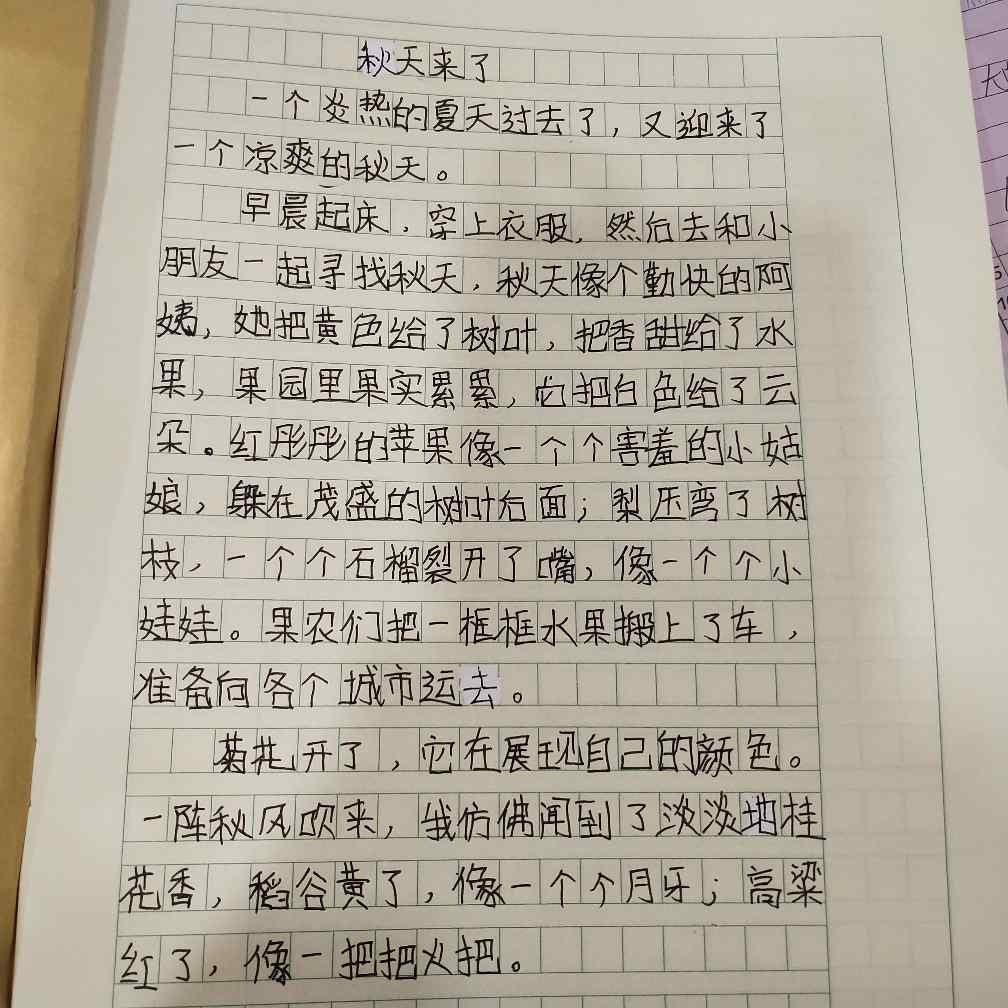 秋天来了
一个炎热的夏天过去了，又迎来了
一个凉爽的秋天。
早晨起床，穿上衣服，然后去和小
朋友一起寻找秋天，秋天像个勤快的阿
姨，她把黄色给了树叶，把香甜给了水
果，果园里果实累累，它把白色给了云
朵。红彤彤的苹果像一个个害羞的小姑
娘，躲在茂盛的树叶后面；梨压弯了树
枝，一个个石榴裂开了嘴，像一个个小
娃娃。果农们把一框框水果搬上了车，
准备向各个城市运去。
菊花开了，它在展现自己的颜色。
一阵秋风吹来，我仿佛闻到了淡淡地桂
花香，稻谷黄了，像一个个月牙；高粱
红了，像一把把火把。